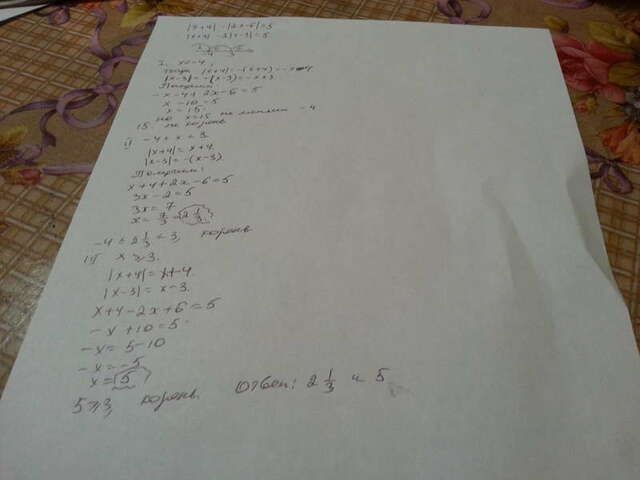 |x+4| - |2x-6| = 5
|x+4| - 2|x-3| = 5
I. x < -4,
тогда |x+4| = -(x+4) = -x-4
|x-3| = -(x-3) = -x+3
Получим:
-x-4+2x-6=5
x-10=5
x=15.
но x=15 не -4
15 не корень
II -4 ≤ x < 3
|x+4| = x+4
|x-3| = -(x-3)
Получим:
x+4+2x-6=5
3x-2=5
3x=7
x= 7/3 = 2 1/3
-4 ≤ 2 1/3 < 3, корень
III x ≥ 3.
|x+4| = x+4.
|x-3| = x-3.
x+4-2x+6=5
-x+10=5
-x=5-10
-x=-5
x=5
5≥3, корень Ответ: 2 1/3 и 5